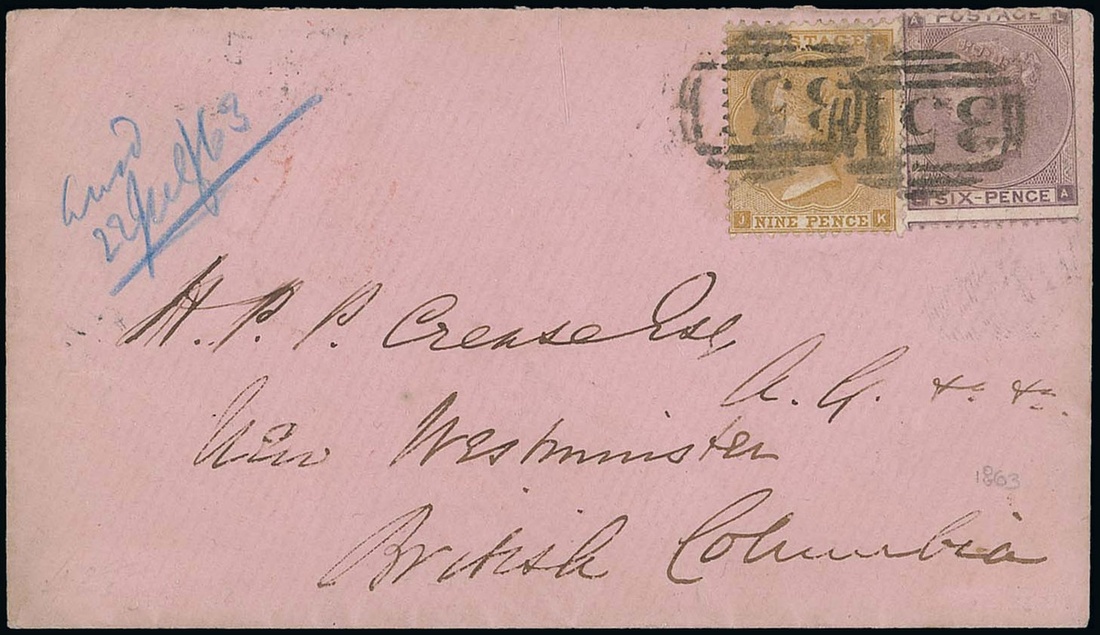 POSTAGE
A POSTAGE L
J NINE PENCE K
L SIX-PENCE A
22 July/63
H. P. P. Crease Esq,
A. G. &c &c.
New Westminster
British Columbia
1863